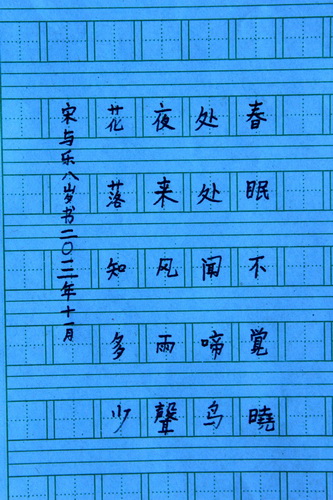 春眠不覺曉
处处闻啼鸟
夜来风雨聲
花落知多少
宋与乐八岁书二〇二二年十一月